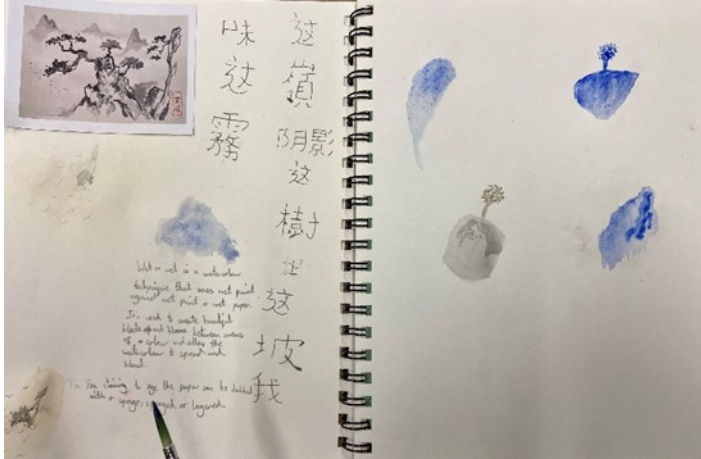 这
嶺
阴影
这
樹
这
坡
我
味
这
霧
Wet on wet is a watercolour
technique that uses wet paint
against wet paint or wet paper.
It's used to create beautiful
bleeds and blooms between areas
of colour and allows the
watercolour to spread and
blend.
staining to age the paper can be dabbed
with a sponge, or layered.